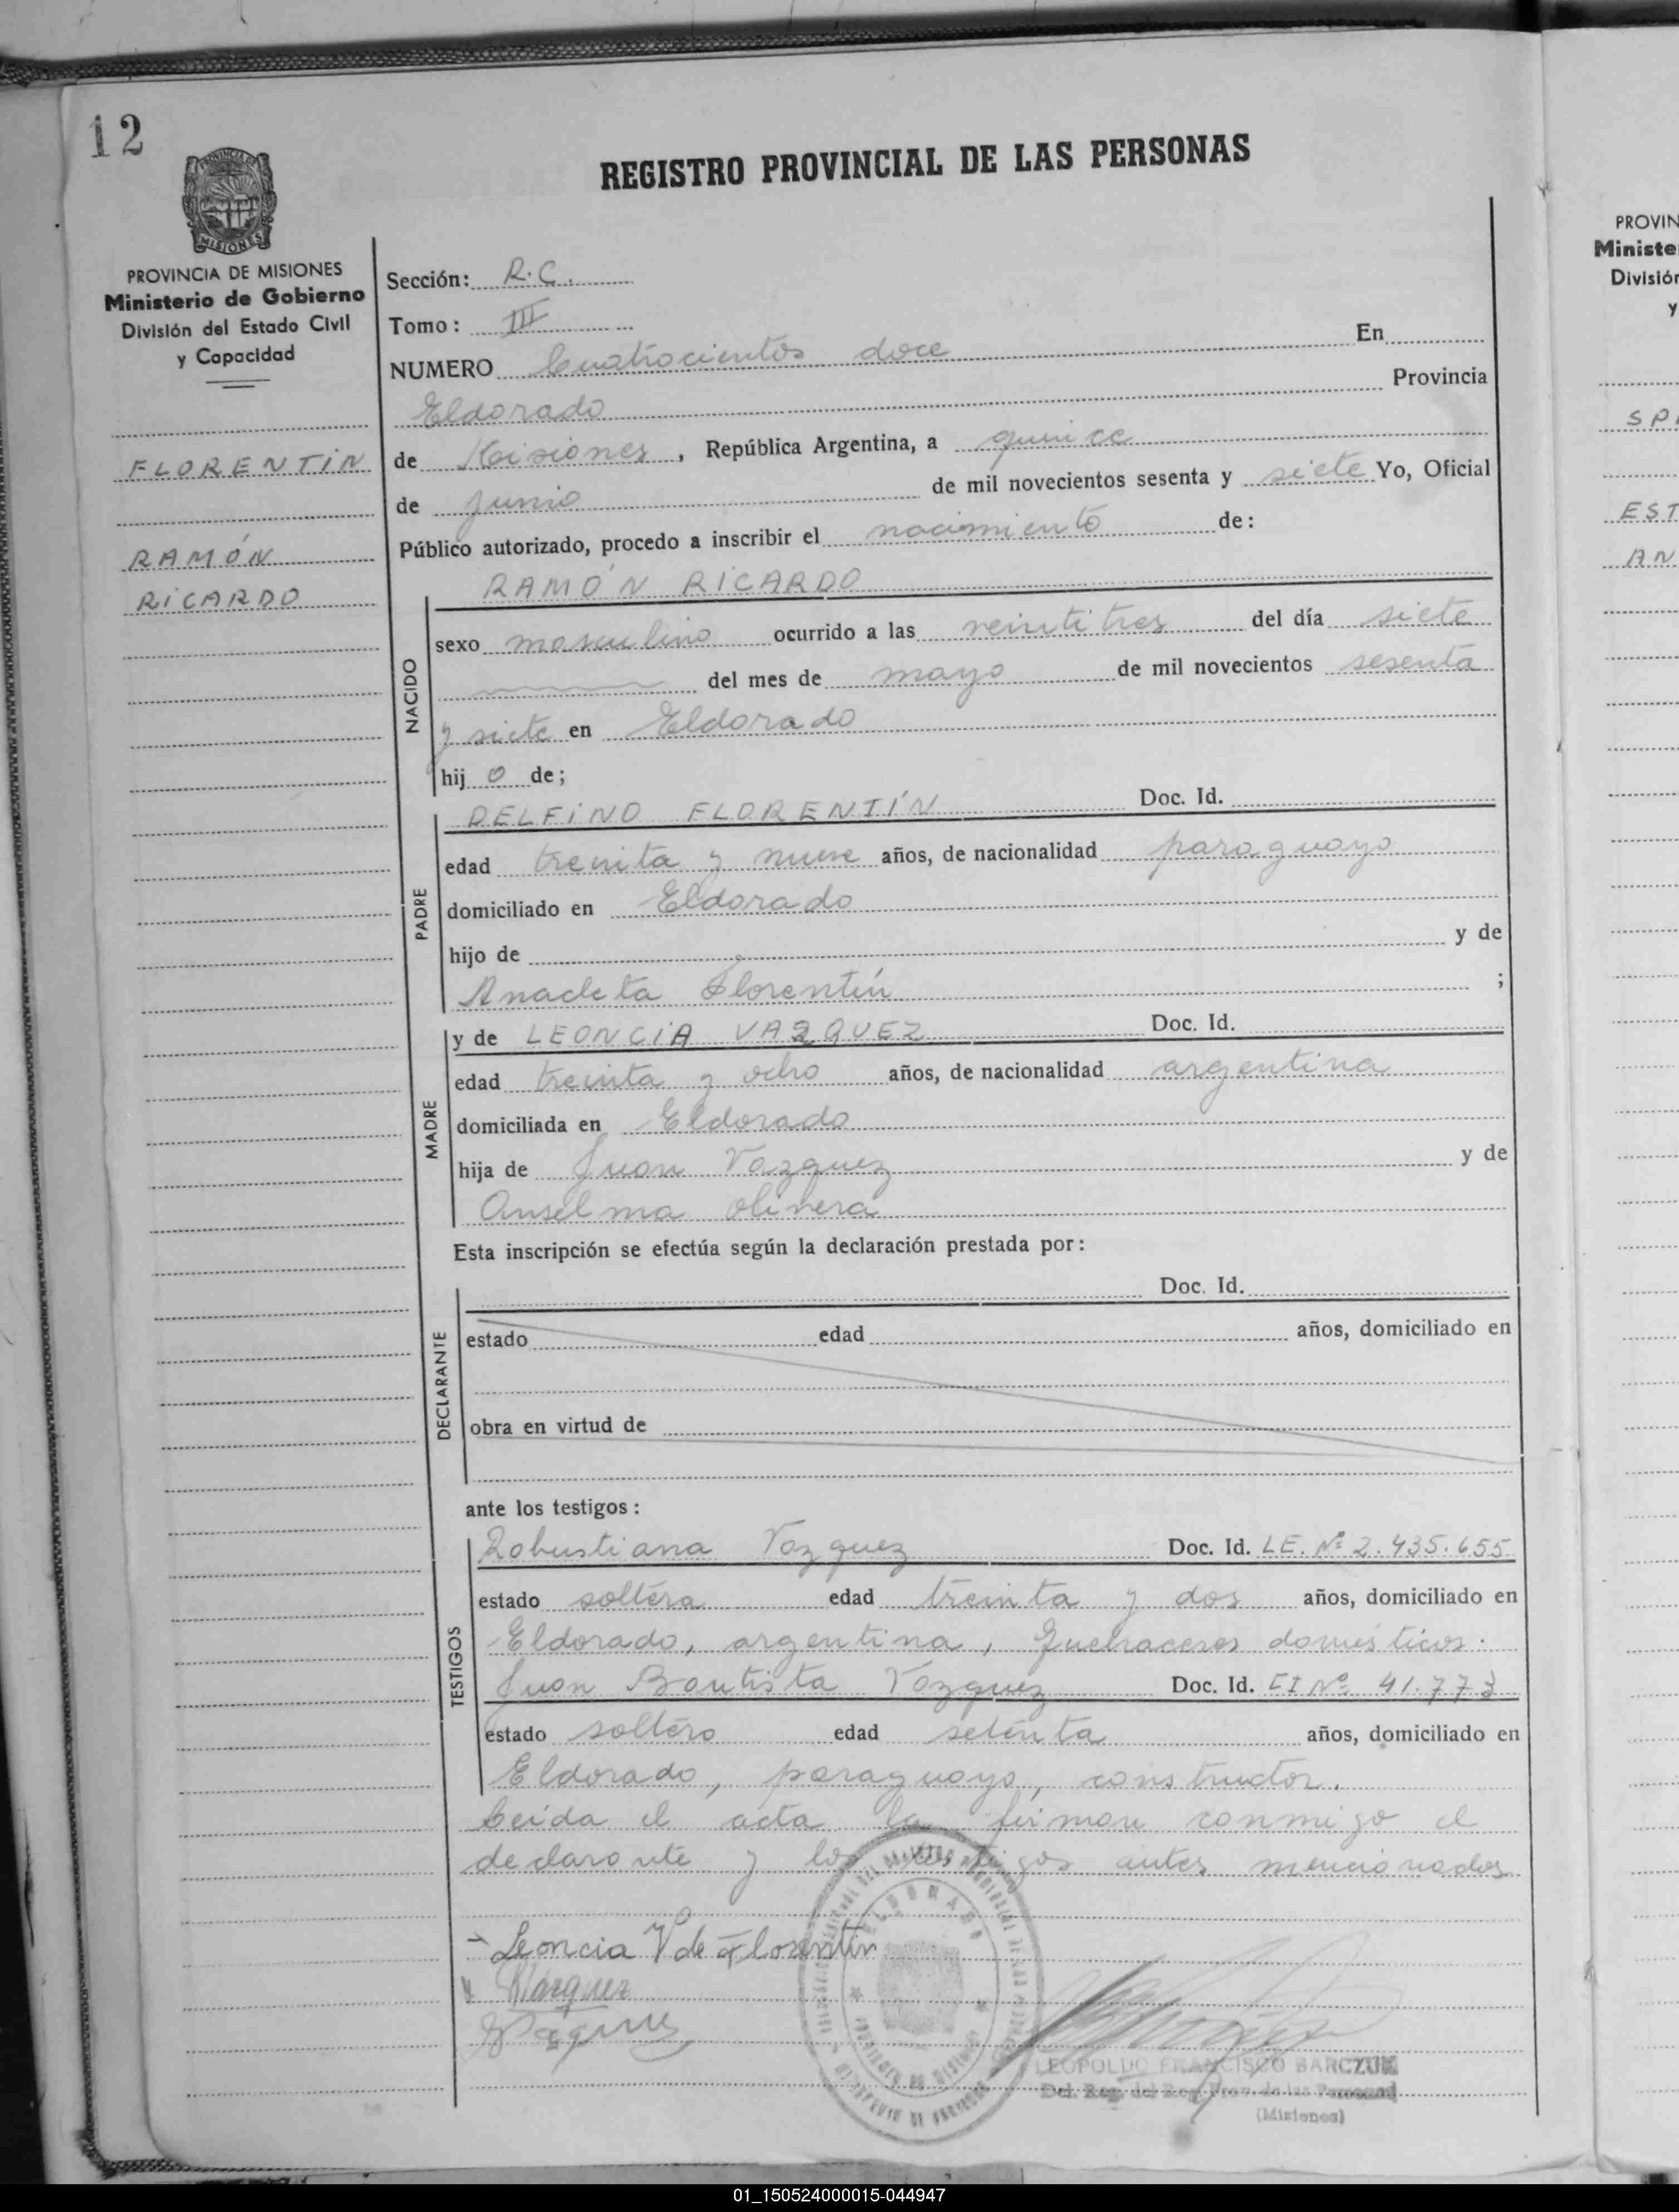 12
REGISTRO PROVINCIAL DE LAS PERSONAS
PROVINCIA DE
MISIONES
PROVINCIA DE MISIONES
Ministerio de Gobierno
División del Estado Civil
y Capacidad
FLORENTIN
RAMÓN
RICARDO
Sección: R.C.
Tomo: III
NUMERO Cuatrocientos doce En
Eldorado Provincia
de Misiones, República Argentina, a quince
de junio de mil novecientos sesenta y siete Yo, Oficial
Público autorizado, procedo a inscribir el nacimiento de:
RAMÓN RICARDO
NACIDO
sexo masculino ocurrido a las veintitres del día siete
del mes de mayo de mil novecientos sesenta
y siete en Eldorado
hij o de;
DELFINO FLORENTÍN Doc. Id.
PADRE
edad treinta y nueve años, de nacionalidad paraguayo
domiciliado en Eldorado
hijo de y de
Anacleta Florentín ;
y de LEONCIA VAZQUEZ Doc. Id.
MADRE
edad treinta y ocho años, de nacionalidad argentina
domiciliada en Eldorado
hija de Juan Vazquez y de
Anselma Olivera
Esta inscripción se efectúa según la declaración prestada por:
Doc. Id.
DECLARANTE
estado edad años, domiciliado en
obra en virtud de
ante los testigos:
TESTIGOS
Robustiana Vazquez Doc. Id. LE. Nº 2.435.655
estado soltera edad treinta y dos años, domiciliado en
Eldorado, argentina, Quehaceres domésticos.
Juan Bautista Vazquez Doc. Id. CI Nº 41.773
estado soltero edad setenta años, domiciliado en
Eldorado, paraguayo, constructor.
Leida el acta la firman conmigo el
declarante y los testigos antes mencionados
Leoncia V de Florentin
Vázquez
Vazquez
ELDORADO
PROVINCIA DE MISIONES
LEOPOLDO FRANCISCO BARCZUK
Del. Reg. del Reg. Prov. de las Personas
(Misiones)
PROVIN
Ministe
División
y
SP
EST
AN
01_150524000015-044947